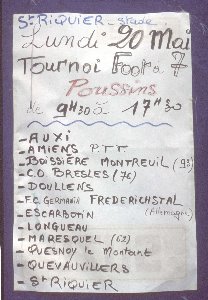 St RIQUIER - stade
Lundi 20 Mai
Tournoi Foot à 7
Poussins
de 9H30 à 17H30
- AUXI
- AMIENS PTT
- BOISSIÈRE MONTREUIL (93)
- C.O. BRESLES (76)
- DOULLENS
- F.C. GERMANIA FREDERICHSTAL
(Allemagne)
- ESCARBOTIN
- LONGUEAU
- MARESQUEL (62)
- QUESNOY le Montant
- QUEVAUVILLERS
- St RIQUIER